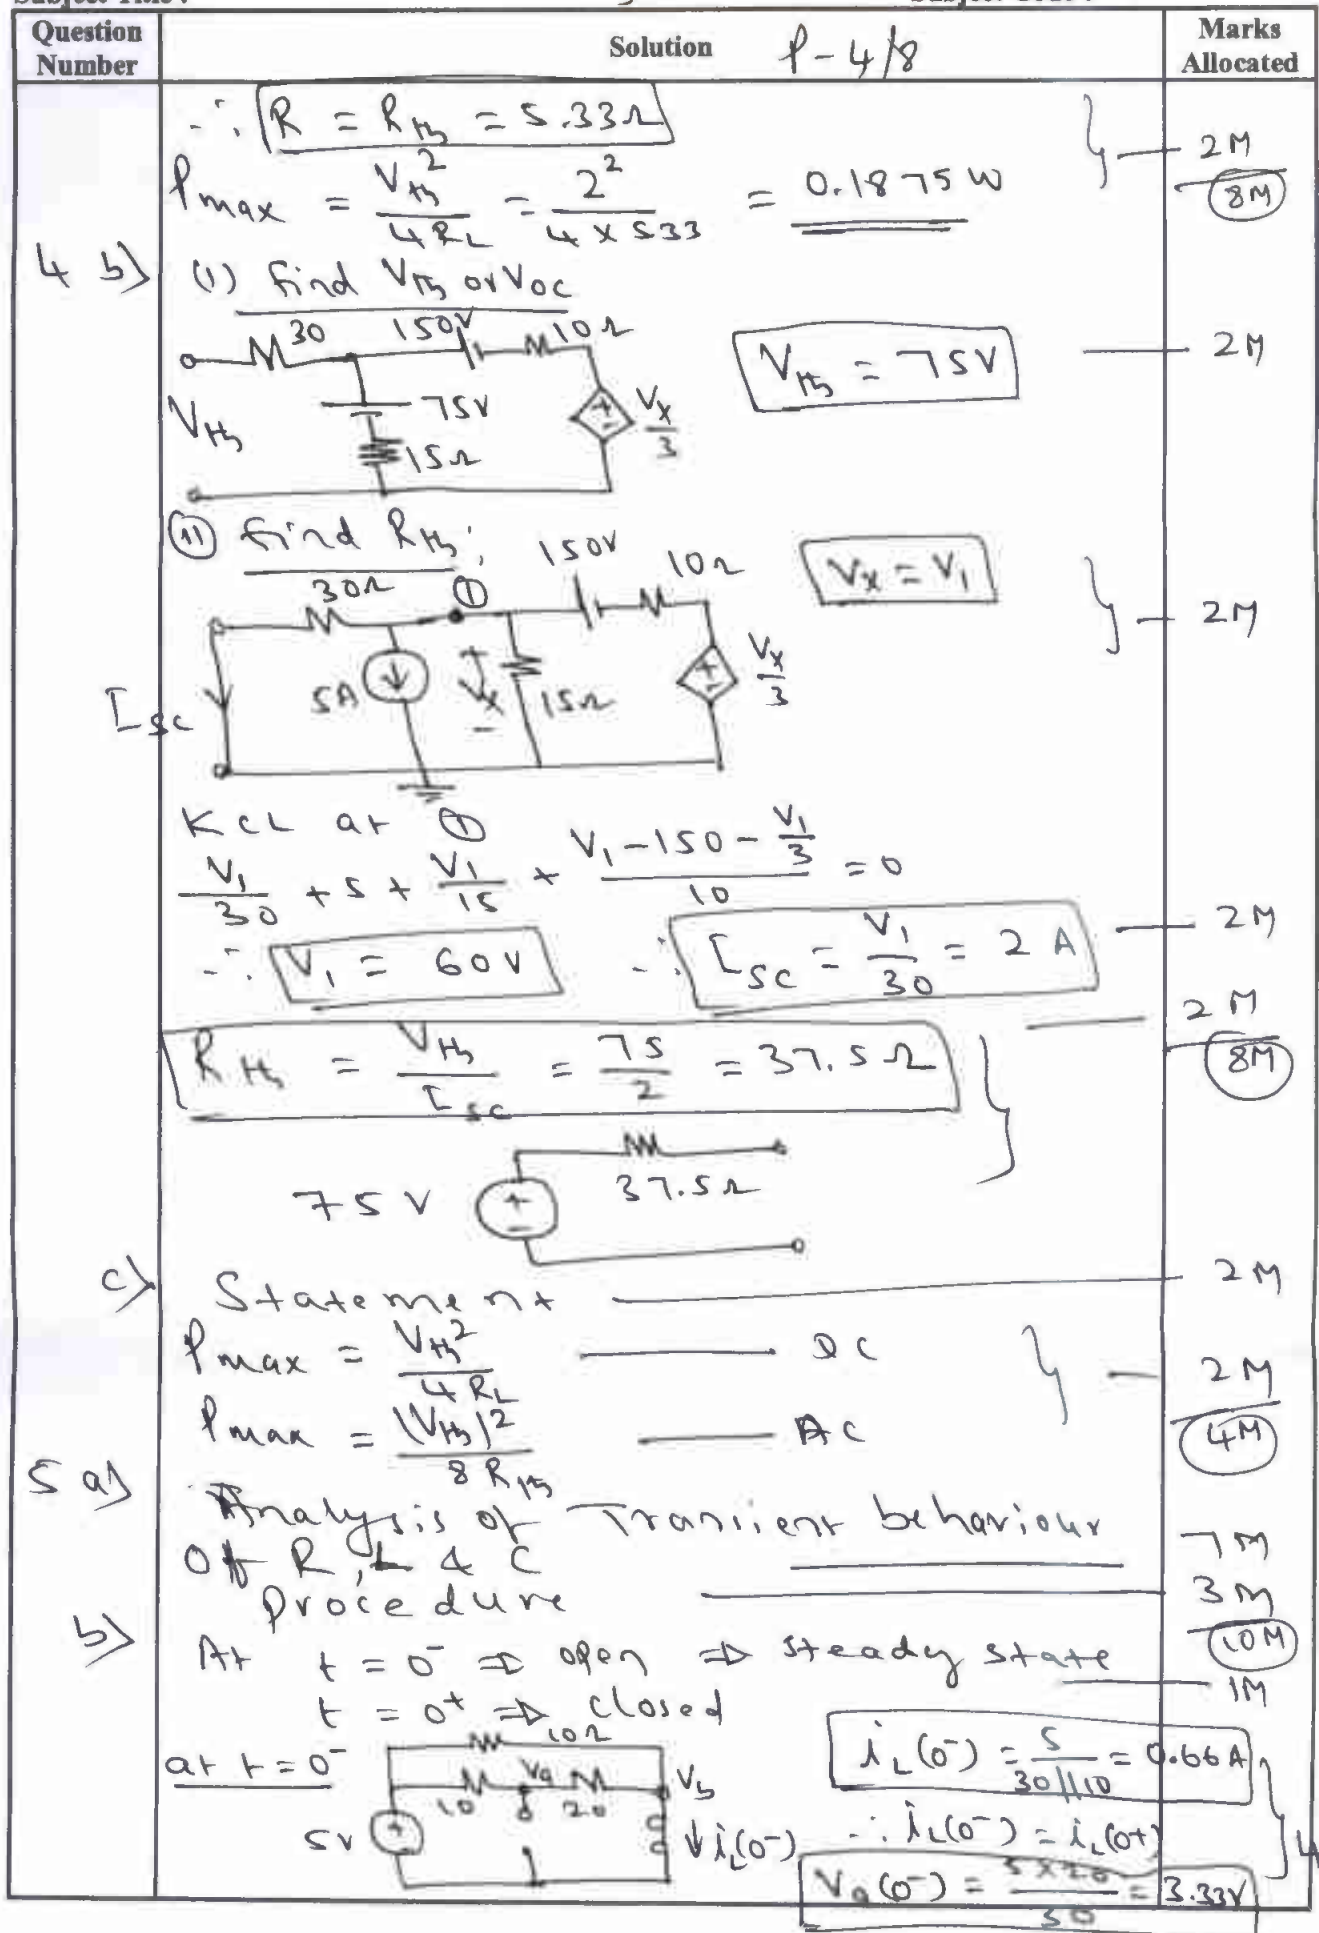 Question Number
Solution P-4/8
Marks Allocated
∴ R = Rth = 5.33Ω
Pmax = Vth² / 4RL = 2² / 4 × 533 = 0.1875 W
2M
8M
4 b) (i) Find Vth or Voc
30 150V 10Ω
Vth = 75V
2M
Vth 75V 15Ω Vx/3
(ii) find Rth;
30Ω ① 150V 10Ω
Vx = V1
2M
Isc 5A + Vx - 15Ω Vx/3
KCL at ①
V1/30 + 5 + V1/15 + (V1 - 150 - V1/3)/10 = 0
∴ V1 = 60V ∴ Isc = V1/30 = 2 A
2M
Rth = Vth/Isc = 75/2 = 37.5Ω
2M
8M
75V 37.5Ω
c) Statement
2M
Pmax = Vth² / 4RL — DC
2M
Pmax = |Vth|² / 8 Rth — AC
4M
5 a) Analysis of Transient behaviour
Of R, L & C
7M
Procedure
3M
10M
b) At t = 0⁻ ⇒ open ⇒ steady state
1M
t = 0⁺ ⇒ closed
at t = 0⁻
10Ω
10 Va 20 Vb
5V ↓iL(0⁻)
iL(0⁻) = 5 / 30||10 = 0.66A
∴ iL(0⁻) = iL(0+)
Va(0⁻) = 5×20 / 30 = 3.33V